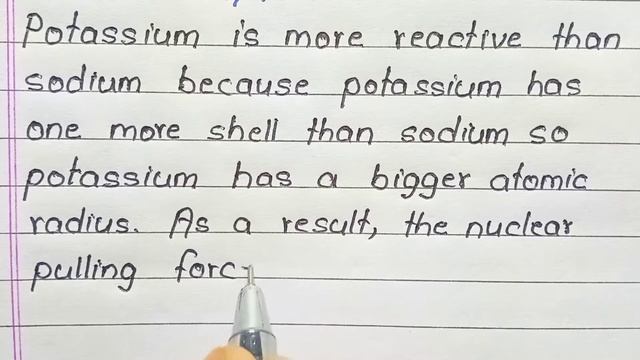 Potassium is more reactive than
sodium because potassium has
one more shell than sodium so
potassium has a bigger atomic
radius. As a result, the nuclear
pulling forc